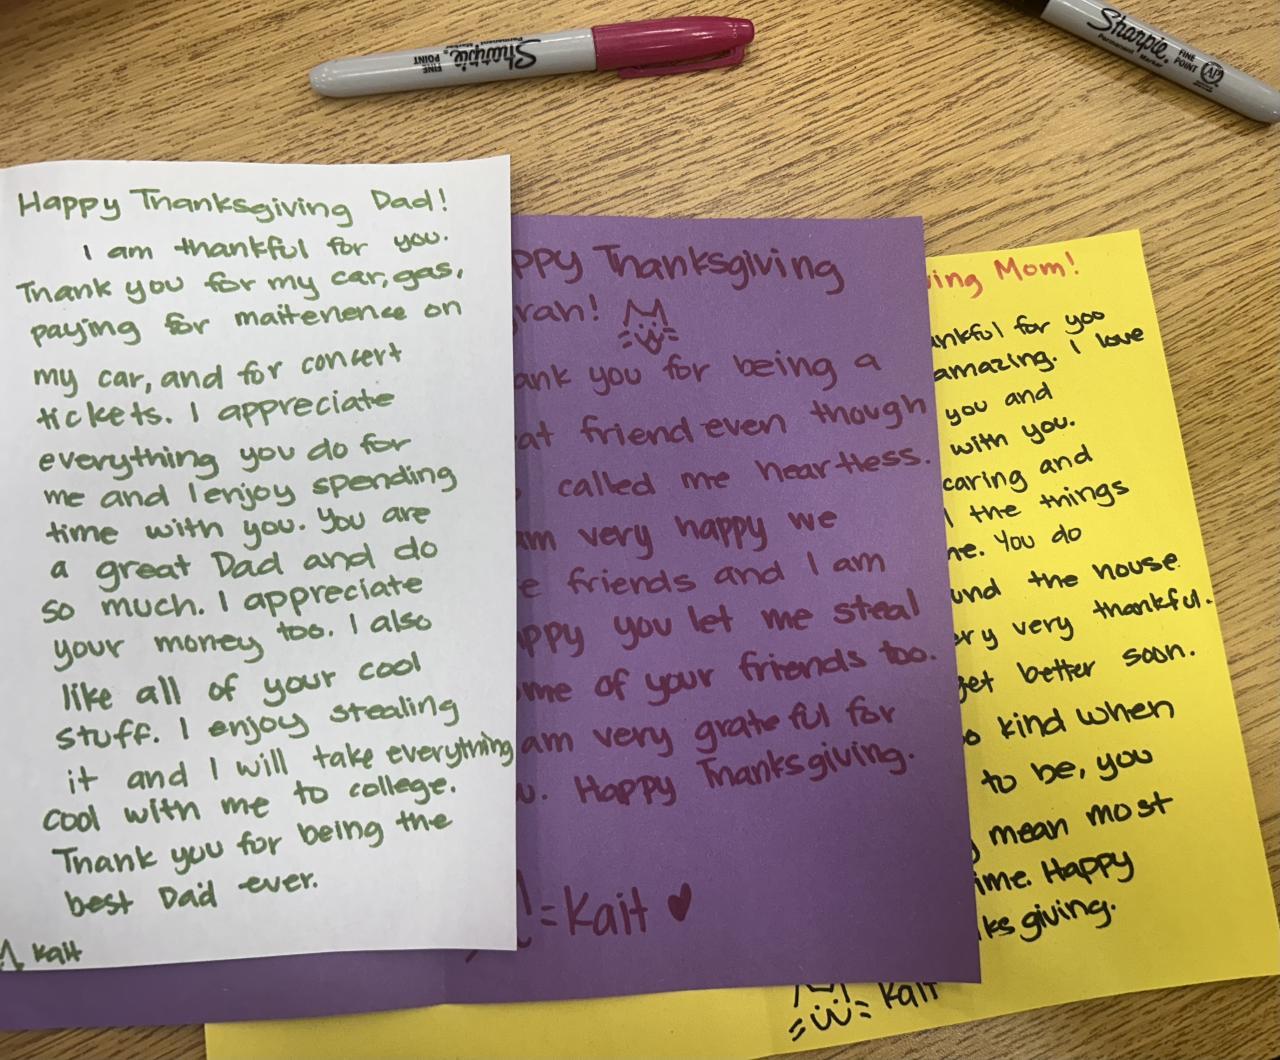 Sharpie
Permanent Marker
FINE
POINT
Sharpie
Permanent Marker
FINE
POINT
AP
Happy Thanksgiving Dad!
I am thankful for you.
Thank you for my car, gas,
paying for maitenence on
my car, and for concert
tickets. I appreciate
everything you do for
me and I enjoy spending
time with you. You are
a great Dad and do
so much. I appreciate
your money too. I also
like all of your cool
stuff. I enjoy stealing
it and I will take everything
cool with me to college.
Thank you for being the
best Dad ever.
Kait
ppy Thanksgiving
rah!
ank you for being a
at friend even though
called me heartless.
am very happy we
e friends and I am
ppy you let me steal
me of your friends too.
am very grateful for
u. Happy Thanksgiving.
Kait
ving Mom!
ankful for you
amazing. I love
you and
with you.
caring and
l the things
me. You do
und the house
ery very thankful.
get better soon.
o kind when
to be, you
mean most
ime. Happy
ksgiving.
Kait